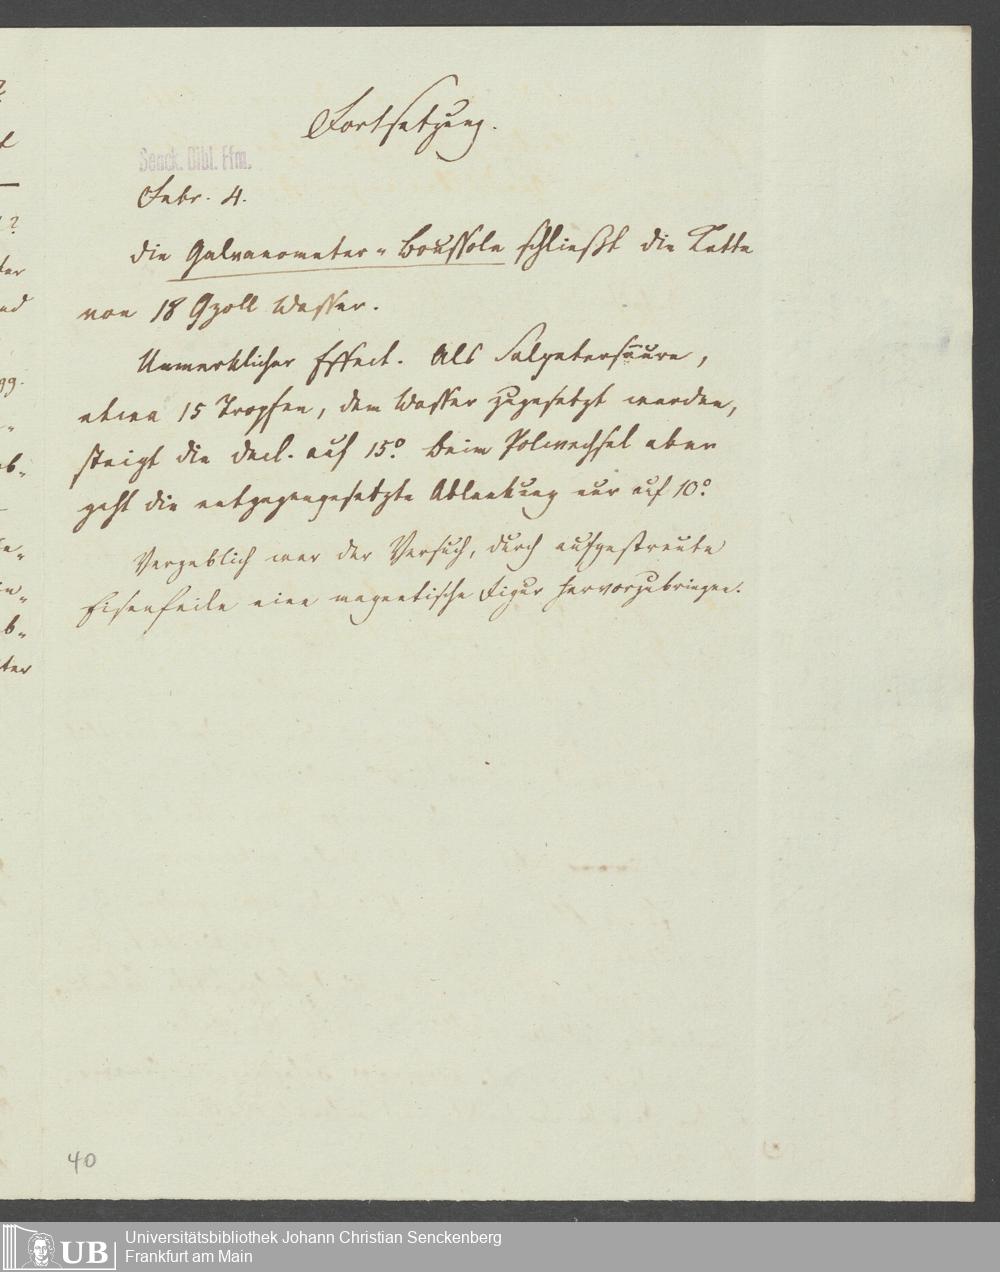 Fortsetzung.
Senck. Bibl. Ffm.
Febr. 4.
Die Galvanometer-Boussole schließt die Kette
von 18 Qzoll Wasser.
Unmerklicher Effect. Als Salpetersäure,
etwa 15 Tropfen, dem Wasser zugesetzt werden,
steigt die Decl. auf 15°. Beim Polwechsel aber
geht die entgegengesetzte Ablenkung nur auf 10°.
Vergeblich war der Versuch, durch aufgestreute
Eisenfeile eine magnetische Figur hervorzubringen.
40
UB
Universitätsbibliothek Johann Christian Senckenberg
Frankfurt am Main